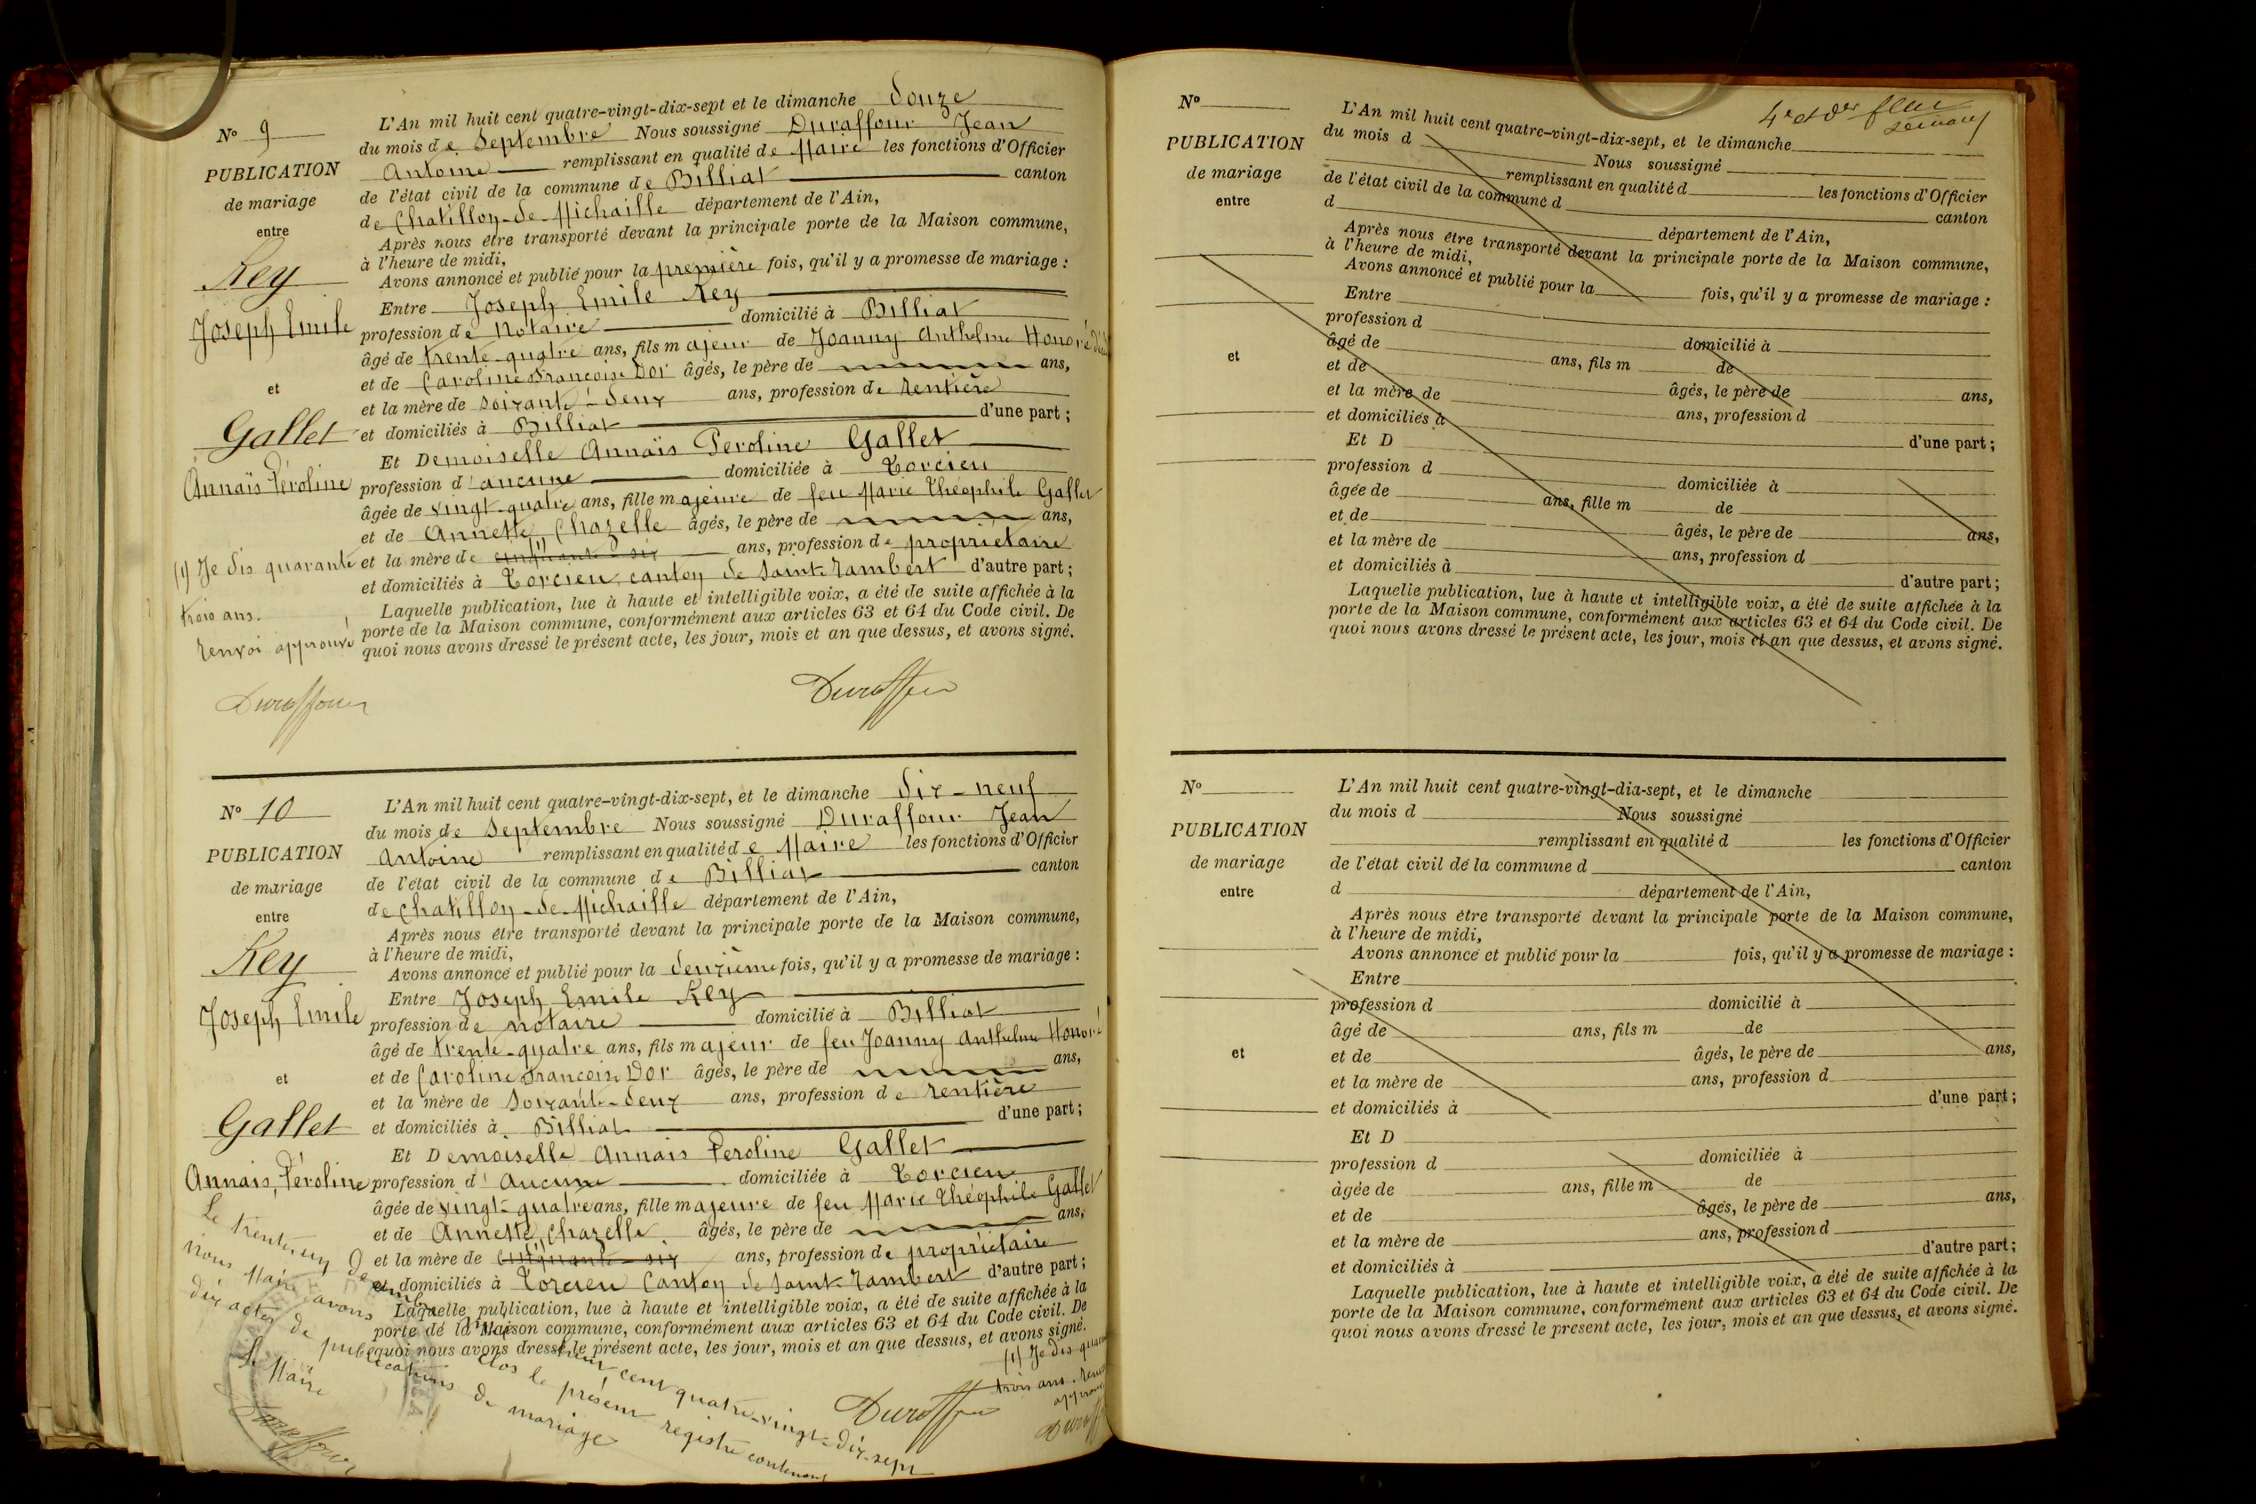 N° 9
PUBLICATION
de mariage
entre
Rey
Joseph Emile
et
Gallet
Annaïs Péroline
(1) Je dis quarante
trois ans.
renvoi approuvé
Duraffour
L'An mil huit cent quatre-vingt-dix-sept et le dimanche douze
du mois de Septembre Nous soussigné Duraffour Jean
Antoine remplissant en qualité de Maire les fonctions d'Officier
de l'état civil de la commune de Billiat canton
de Chatillon-de-Michaille département de l'Ain,
Après nous être transporté devant la principale porte de la Maison commune,
à l'heure de midi,
Avons annoncé et publié pour la première fois, qu'il y a promesse de mariage :
Entre Joseph Emile Rey
profession de notaire domicilié à Billiat
âgé de trente-quatre ans, fils majeur de Joanny Anthelme Honoré
et de Caroline Françoise Dor âgés, le père de ans,
et la mère de soixante-deux ans, profession de rentière
et domiciliés à Billiat d'une part ;
Et Demoiselle Annaïs Péroline Gallet
profession d'aucune domiciliée à Torcieu
âgée de vingt-quatre ans, fille majeure de feu Marie Théophile Gallet
et de Annette Chazelle âgés, le père de ans,
et la mère de (1) cinquante-six ans, profession de propriétaire
et domiciliés à Torcieu canton de Saint-Rambert d'autre part ;
Laquelle publication, lue à haute et intelligible voix, a été de suite affichée à la
porte de la Maison commune, conformément aux articles 63 et 64 du Code civil. De
quoi nous avons dressé le présent acte, les jour, mois et an que dessus, et avons signé.
Duraffour
N° 10
PUBLICATION
de mariage
entre
Rey
Joseph Emile
et
Gallet
Annaïs, Péroline
L'An mil huit cent quatre-vingt-dix-sept, et le dimanche dix-neuf
du mois de Septembre Nous soussigné Duraffour Jean
Antoine remplissant en qualité de Maire les fonctions d'Officier
de l'état civil de la commune de Billiat canton
de Chatillon-de-Michaille département de l'Ain,
Après nous être transporté devant la principale porte de la Maison commune,
à l'heure de midi,
Avons annoncé et publié pour la deuxième fois, qu'il y a promesse de mariage :
Entre Joseph Emile Rey
profession de notaire domicilié à Billiat
âgé de trente-quatre ans, fils majeur de feu Joanny Anthelme Honoré
et de Caroline Françoise Dor âgés, le père de ans,
et la mère de soixante-deux ans, profession de rentière
et domiciliés à Billiat d'une part ;
Et Demoiselle Annaïs Péroline Gallet
profession d'Aucune domiciliée à Torcieu
âgée de vingt-quatre ans, fille majeure de feu Marie Théophile Gallet
et de Annette Chazelle âgés, le père de ans,
et la mère de (1) cinquante-six ans, profession de propriétaire
et domiciliés à Torcieu Canton de Saint-Rambert d'autre part ;
Laquelle publication, lue à haute et intelligible voix, a été de suite affichée à la
porte de la Maison commune, conformément aux articles 63 et 64 du Code civil. De
quoi nous avons dressé le présent acte, les jour, mois et an que dessus, et avons signé.
(1) Je dis
trois ans.
Duraffour
Le trente-un Décembre mil huit cent quatre-vingt-dix-sept
nous Maire avons clos le présent registre contenant
dix actes de publications de mariage
Le Maire
Duraffour
4e et der
N°
PUBLICATION
de mariage
entre
et
L'An mil huit cent quatre-vingt-dix-sept, et le dimanche
du mois d Nous soussigné
remplissant en qualité d les fonctions d'Officier
de l'état civil de la commune d canton
d département de l'Ain,
Après nous être transporté devant la principale porte de la Maison commune,
à l'heure de midi,
Avons annoncé et publié pour la fois, qu'il y a promesse de mariage :
Entre
profession d domicilié à
âgé de ans, fils m de
et de âgés, le père de ans,
et la mère de ans, profession d
et domiciliés à d'une part ;
Et D
profession d domiciliée à
âgée de ans, fille m de
et de âgés, le père de ans,
et la mère de ans, profession d
et domiciliés à d'autre part ;
Laquelle publication, lue à haute et intelligible voix, a été de suite affichée à la
porte de la Maison commune, conformément aux articles 63 et 64 du Code civil. De
quoi nous avons dressé le présent acte, les jour, mois et an que dessus, et avons signé.
N°
PUBLICATION
de mariage
entre
et
L'An mil huit cent quatre-vingt-dix-sept, et le dimanche
du mois d Nous soussigné
remplissant en qualité d les fonctions d'Officier
de l'état civil de la commune d canton
d département de l'Ain,
Après nous être transporté devant la principale porte de la Maison commune,
à l'heure de midi,
Avons annoncé et publié pour la fois, qu'il y a promesse de mariage :
Entre
profession d domicilié à
âgé de ans, fils m de
et de âgés, le père de ans,
et la mère de ans, profession d
et domiciliés à d'une part ;
Et D
profession d domiciliée à
âgée de ans, fille m de
et de âgés, le père de ans,
et la mère de ans, profession d
et domiciliés à d'autre part ;
Laquelle publication, lue à haute et intelligible voix, a été de suite affichée à la
porte de la Maison commune, conformément aux articles 63 et 64 du Code civil. De
quoi nous avons dressé le présent acte, les jour, mois et an que dessus, et avons signé.